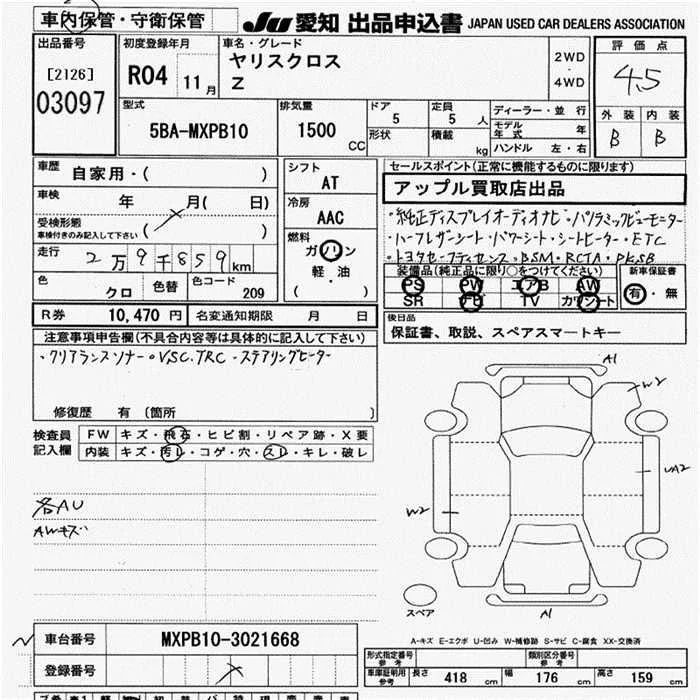 車内保管・守衛保管
JU 愛知 出品申込書 JAPAN USED CAR DEALERS ASSOCIATION
出品番号
[2126]
03097
初度登録年月
R04 11月
車名・グレード
ヤリスクロス
Z
2WD
・
4WD
評価点
4.5
外装 内装
B B
型式
5BA-MXPB10
排気量
1500 CC
ドア
5
定員
5 人
形状
積載
kg
ディーラー・並行
モデル年式 年
ハンドル 左・右
車歴
自家用・( )
車検
年 月( 日)
受検形態
車検付きのみ記入して下さい
( )
走行
2万9千859km
色
クロ
色替
色コード
209
シフト
AT
冷房
AAC
燃料
ガソリン
軽・油
( )
セールスポイント(正常に機能するものに限ります)
アップル買取店出品
・純正ディスプレイオーディオナビ・パノラミックビューモニター
・ハーフレザーシート・パワーシート・シートヒーター・ETC
・トヨタセーフティセンス・BSM・RCTA・PKSB
装備品(純正品に限り○をつけてください)
PS PW エアB AW
SR ナビ TV カワシート
新車保証書
有・無
R券 10,470 円 名変通知期限 月 日
後日品
保証書、取説、スペアスマートキー
注意事項申告欄(不具合内容等は具体的に記入して下さい)
・クリアランスソナー・VSC.TRC・ステアリングヒーター
修復歴 有 〔箇所 〕
検査員
記入欄
FW キズ・飛石・ヒビ割・リペア跡・X要
内装 キズ・汚レ・コゲ・穴・スレ・キレ・破レ
各AU
AWキズ
A1
W2
UA2
W2
A1
スペア
A-キズ E-エクボ U-凹み W-補修跡 S-サビ C-腐食 XX-交換済
車台番号 MXPB10-3021668
登録番号
型式指定番号
参考
類別区分番号
参考
車庫証明用
参考
長さ 418 cm 幅 176 cm 高さ 159 cm